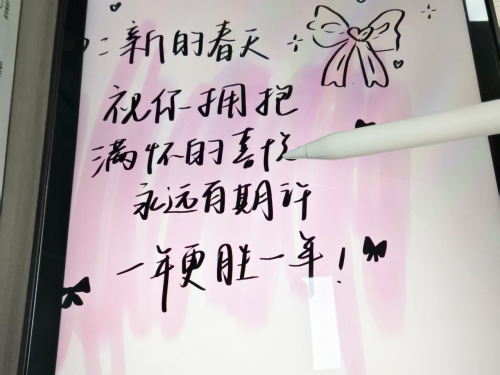 ：新的春天
祝你拥抱
满怀的喜悦
永远有期许
一年更胜一年！